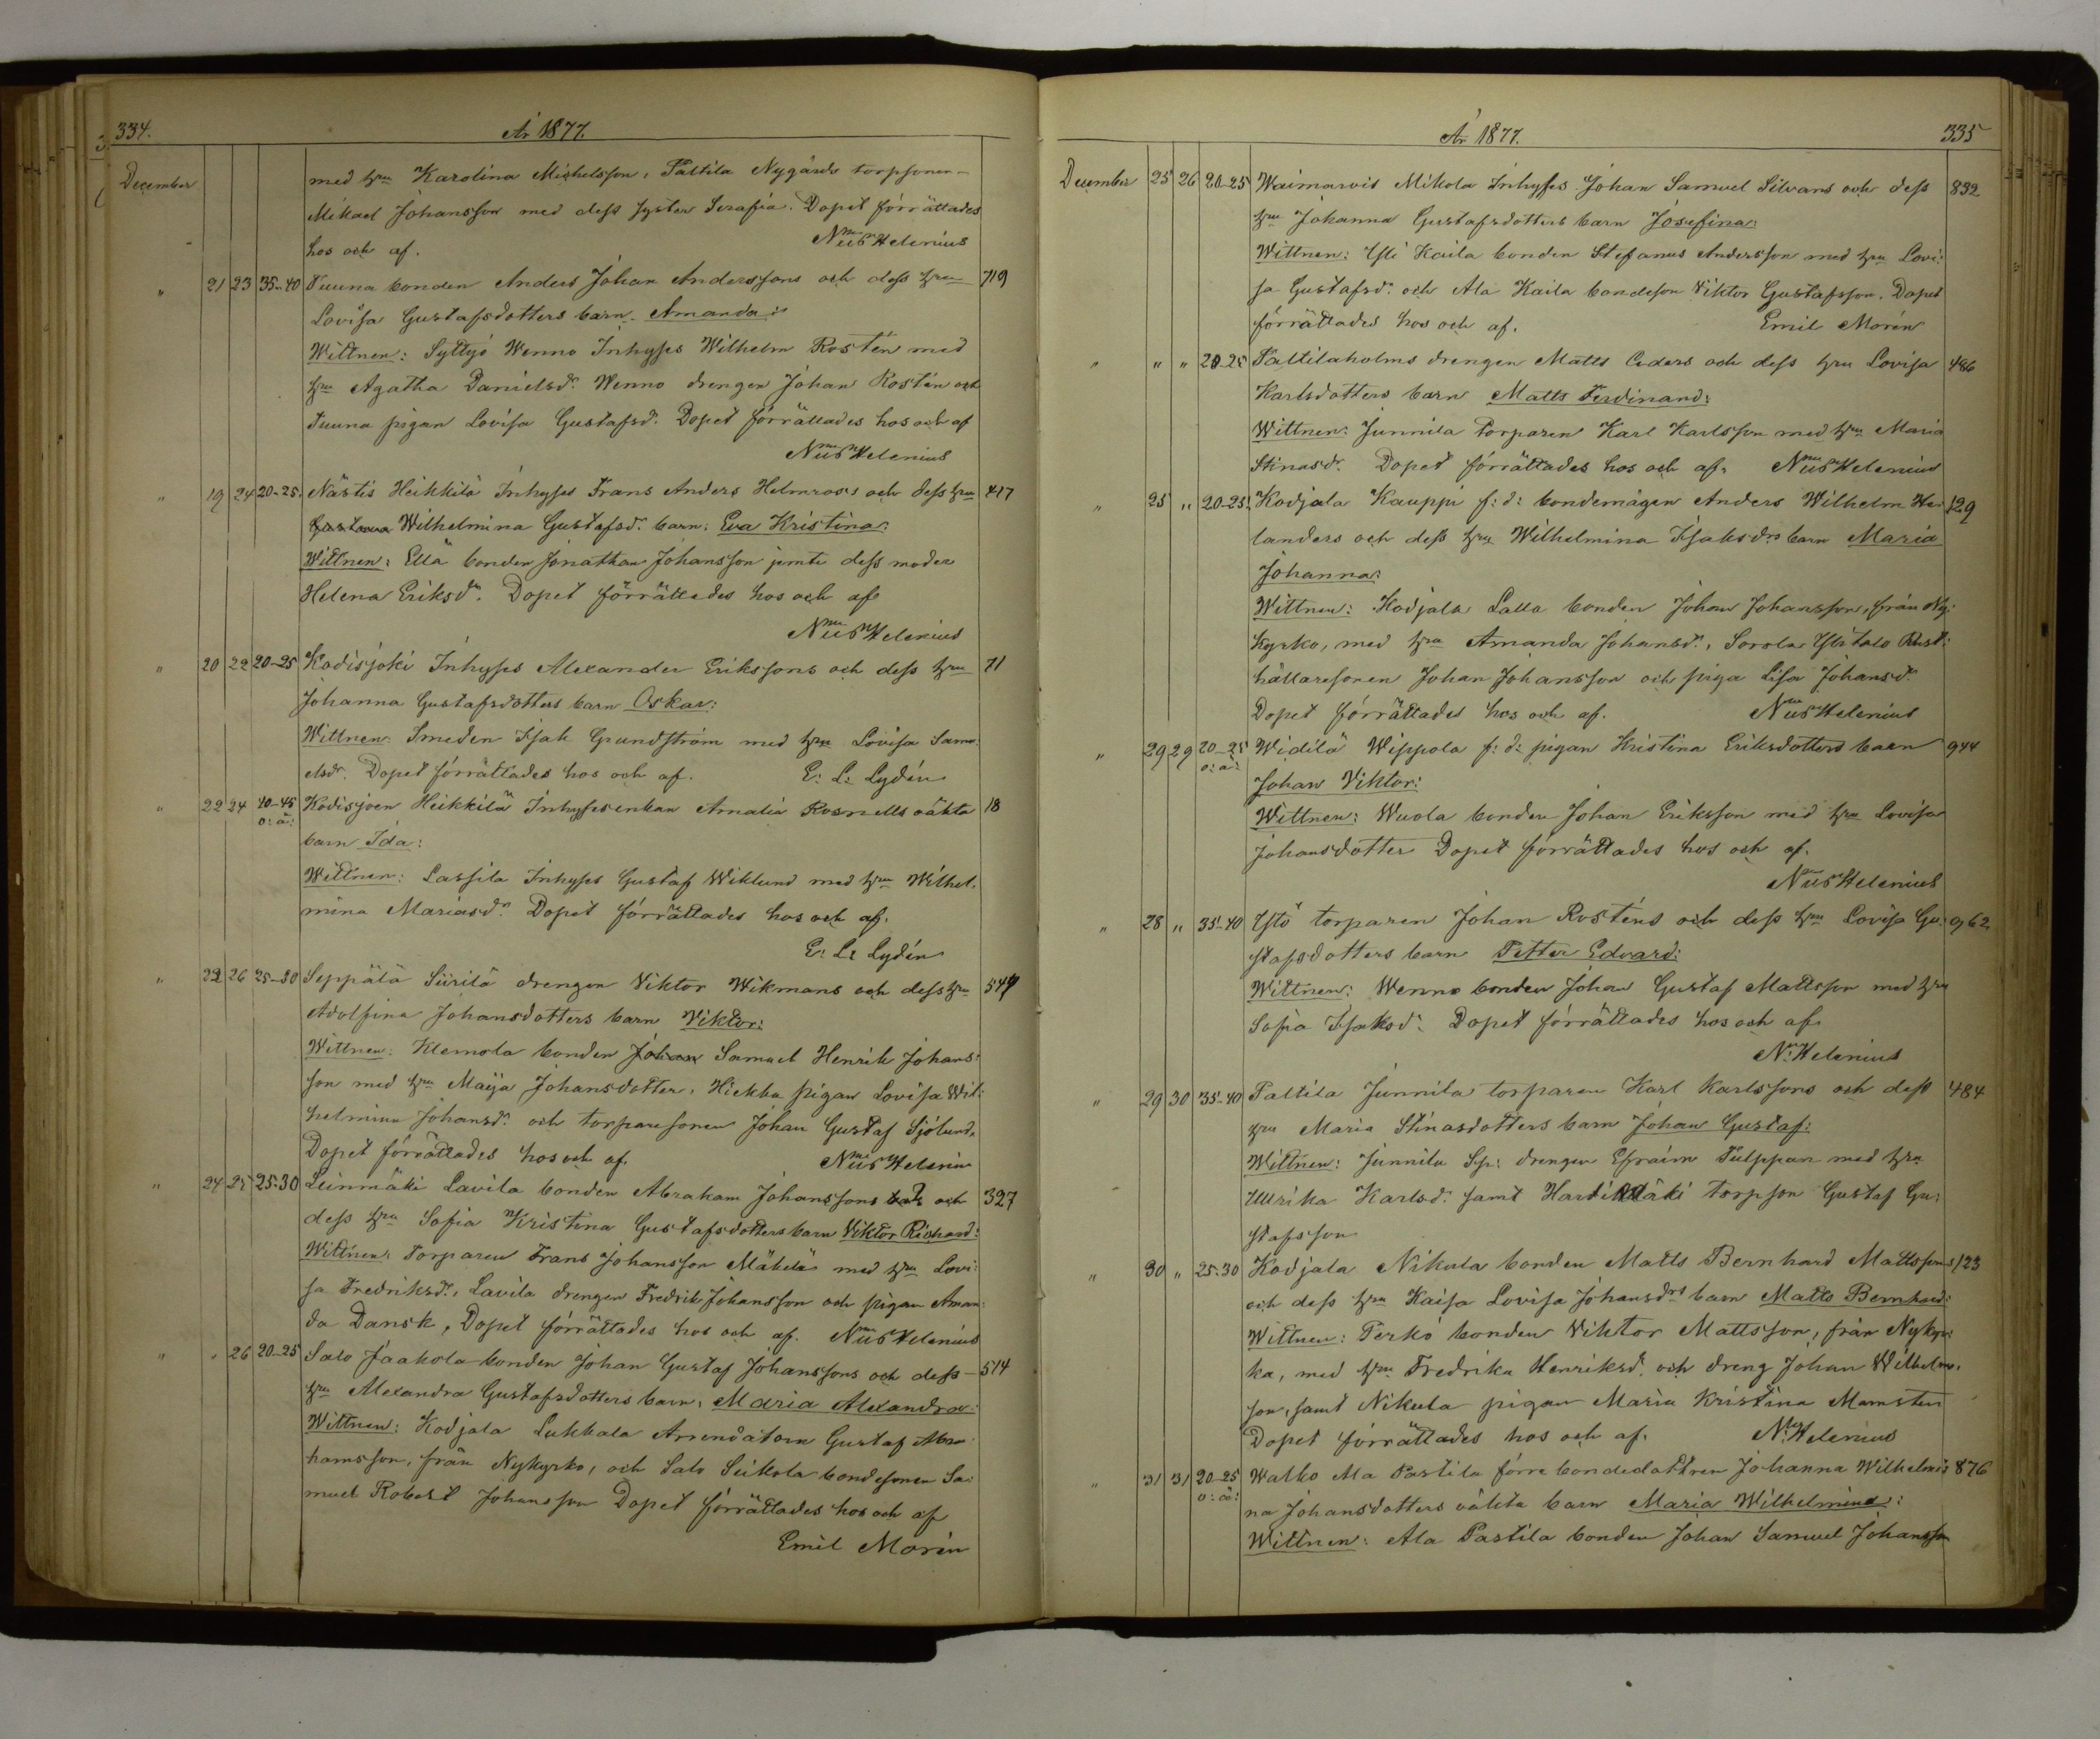 334. År 1877.
December med hru Karolina Michelsson, Paltila Nygårds torpsonen
Mikael Johansson med dess syster Serafia. Dopet förrättades
hos och af. Nils Helenius
" 21 23 35-40 Tuuna bonden Anders Johan Anderssons och dess hru 719
Lovisa Gustafsdotters barn Amanda:
Wittnen: Syltyö Wenno Inhyses Wilhelm Rostén med
hru Agatha Danielsdr. Wenno drengen Johan Rostén och
Tuuna pigan Lovisa Gustafsdr. Dopet förrättades hos och af
Nils Helenius
" 19 24 20-25. Nästis Heikkilä Inhyses Frans Anders Helmroos's och dess hru 417
Gustava Wilhelmina Gustafsdr. barn: Eva Kristina:
Wittnen: Ellä bonden Jonathan Johansson jemte dess moder
Helena Eriksdr. Dopet förrättades hos och af
Nils Helenius
" 20 22 20-25 Kodisjoki Inhyses Alexander Erikssons och dess hru 71
Johanna Gustafsdotters barn Oskar:
Wittnen: Smeden Isak Grundström med hru Lovisa Samu-
elsdr. Dopet förrättades hos och af. E: L: Lydén
" 22 24 40-45 Kodisjoen Heikkilä Inhysesenkan Amalia Rosnells oäkta 18
o: ä:
barn Ida:
Wittnen: Lassila Inhyses Gustaf Wiklund med hru Wilhel-
mina Mariasdr. Dopet förrättades hos och af.
E: L: Lydén
" 22 26 25-30 Seppälä Siirilä drengen Viktor Wikmans och dess hru 549
Adolfina Johansdotters barn Viktor:
Wittnen: Klemola bonden Johan Samuel Henrik Johans:
son med hru Maija Johansdotter, Hiekka pigan Lovisa Wil:
helmina Johansdr. och torparesonen Johan Gustaf Sjölund.
Dopet förrättades hos och af. Nils Helenius
" 24 25 25-30 Leinmäki Lavila bonden Abraham Johanssons och 327
dess hru Sofia Kristina Gustafsdotters barn Viktor Richard:
Wittnen: Torparen Frans Johansson Mäkelä med hru Lovi:
sa Fredriksdr., Lavila drengen Fredrik Johansson och pigan Aman-
da Dansk, Dopet förrättades hos och af. Nils Helenius
" " 26 20-25 Salo Jaakola bonden Johan Gustaf Johanssons och dess 514
hru Alexandra Gustafsdotters barn, Maria Alexandra:
Wittnen: Kodjala Lukkala Arrendatorn Gustaf Abra-
hamsson, från Nykyrko, och Salo Seikola bondesonen Sa:
muel Robert Johansson Dopet förrättades hos och af
Emil Morén
År 1877. 335
December 25 26 20-25 Waimarois Mikola Inhyses Johan Samuel Silvans och dess 832
hru Johanna Gustafsdotters barn Josefina:
Wittnen: Yli Kaila bonden Stefanus Andersson med hru Lovi:
sa Gustafsdr. och Ala Kaila bondeson Viktor Gustafsson. Dopet
förrättades hos och af. Emil Morén
" " " 20-25 Paltilaholms drengen Matts Ceders och dess hru Lovisa 486
Karlsdotters barn Matts Ferdinand:
Wittnen: Junnila Torparen Karl Karlsson med hru Maria
Stinasdr. Dopet förrättades hos och af. Nils Helenius
" 25 " 20-25. Kodjala Kauppi f: d: bondemågen Anders Wilhelm He- 129
landers och dess hru Wilhelmina Isaksdrs barn Maria
Johanna:
Wittnen: Kodjala Lalla bonden Johan Johansson, från Ny-
kyrko, med hru Amanda Johansdr., Sorola Ylitalo Rust-
hållaresonen Johan Johansson och piga Lisa Johansdr.
Dopet förrättades hos och af. Nils Helenius
" 29 29 20-25 Widilä Wippola f: d: pigan Kristina Eriksdotters barn 944
o: ä:
Johan Viktor:
Wittnen: Wuola bonden Johan Eriksson med hru Lovisa
Johansdotter Dopet förrättades hos och af.
Nils Helenius
" 28 " 35-40 Ylö torparen Johan Rosténs och dess hru Lovisa Gu- 962
stafsdotters barn Petter Edvard:
Wittnen: Wenno bonden Johan Gustaf Mattsson med hru
Sofia Isaksdr. Dopet förrättades hos och af
N. Helenius
" 29 30 35-40 Paltila Junnila torparen Karl Karlssons och dess 484
hru Maria Stinasdotters barn Johan Gustaf:
Wittnen: Junnila Sp: drengen Efraim Tulppan med hru
Ullrika Karlsdr. samt torpson Gustaf Gu-
stafsson
" 30 " 25-30 Kodjala Nikula bonden Matts Bernhard Mattssons 123
och dess hru Kaisa Lovisa Johansdrs barn Matts Bernhard:
Wittnen: Perko bonden Viktor Mattsson, från Nykyr-
ka, med hru Fredrika Henriksdr. och dreng Johan Wilhelms-
son, samt Nikula pigan Maria Kristina Mamsten
Dopet förrättades hos och af. N. Helenius
" 31 31 20-25 Walko Ala Pastila förre bondedottren Johanna Wilhelmi- 876
o: ä:
na Johansdotters oäkta barn Maria Wilhelmina:
Wittnen: Ala Pastila bonden Johan Samuel Johansson